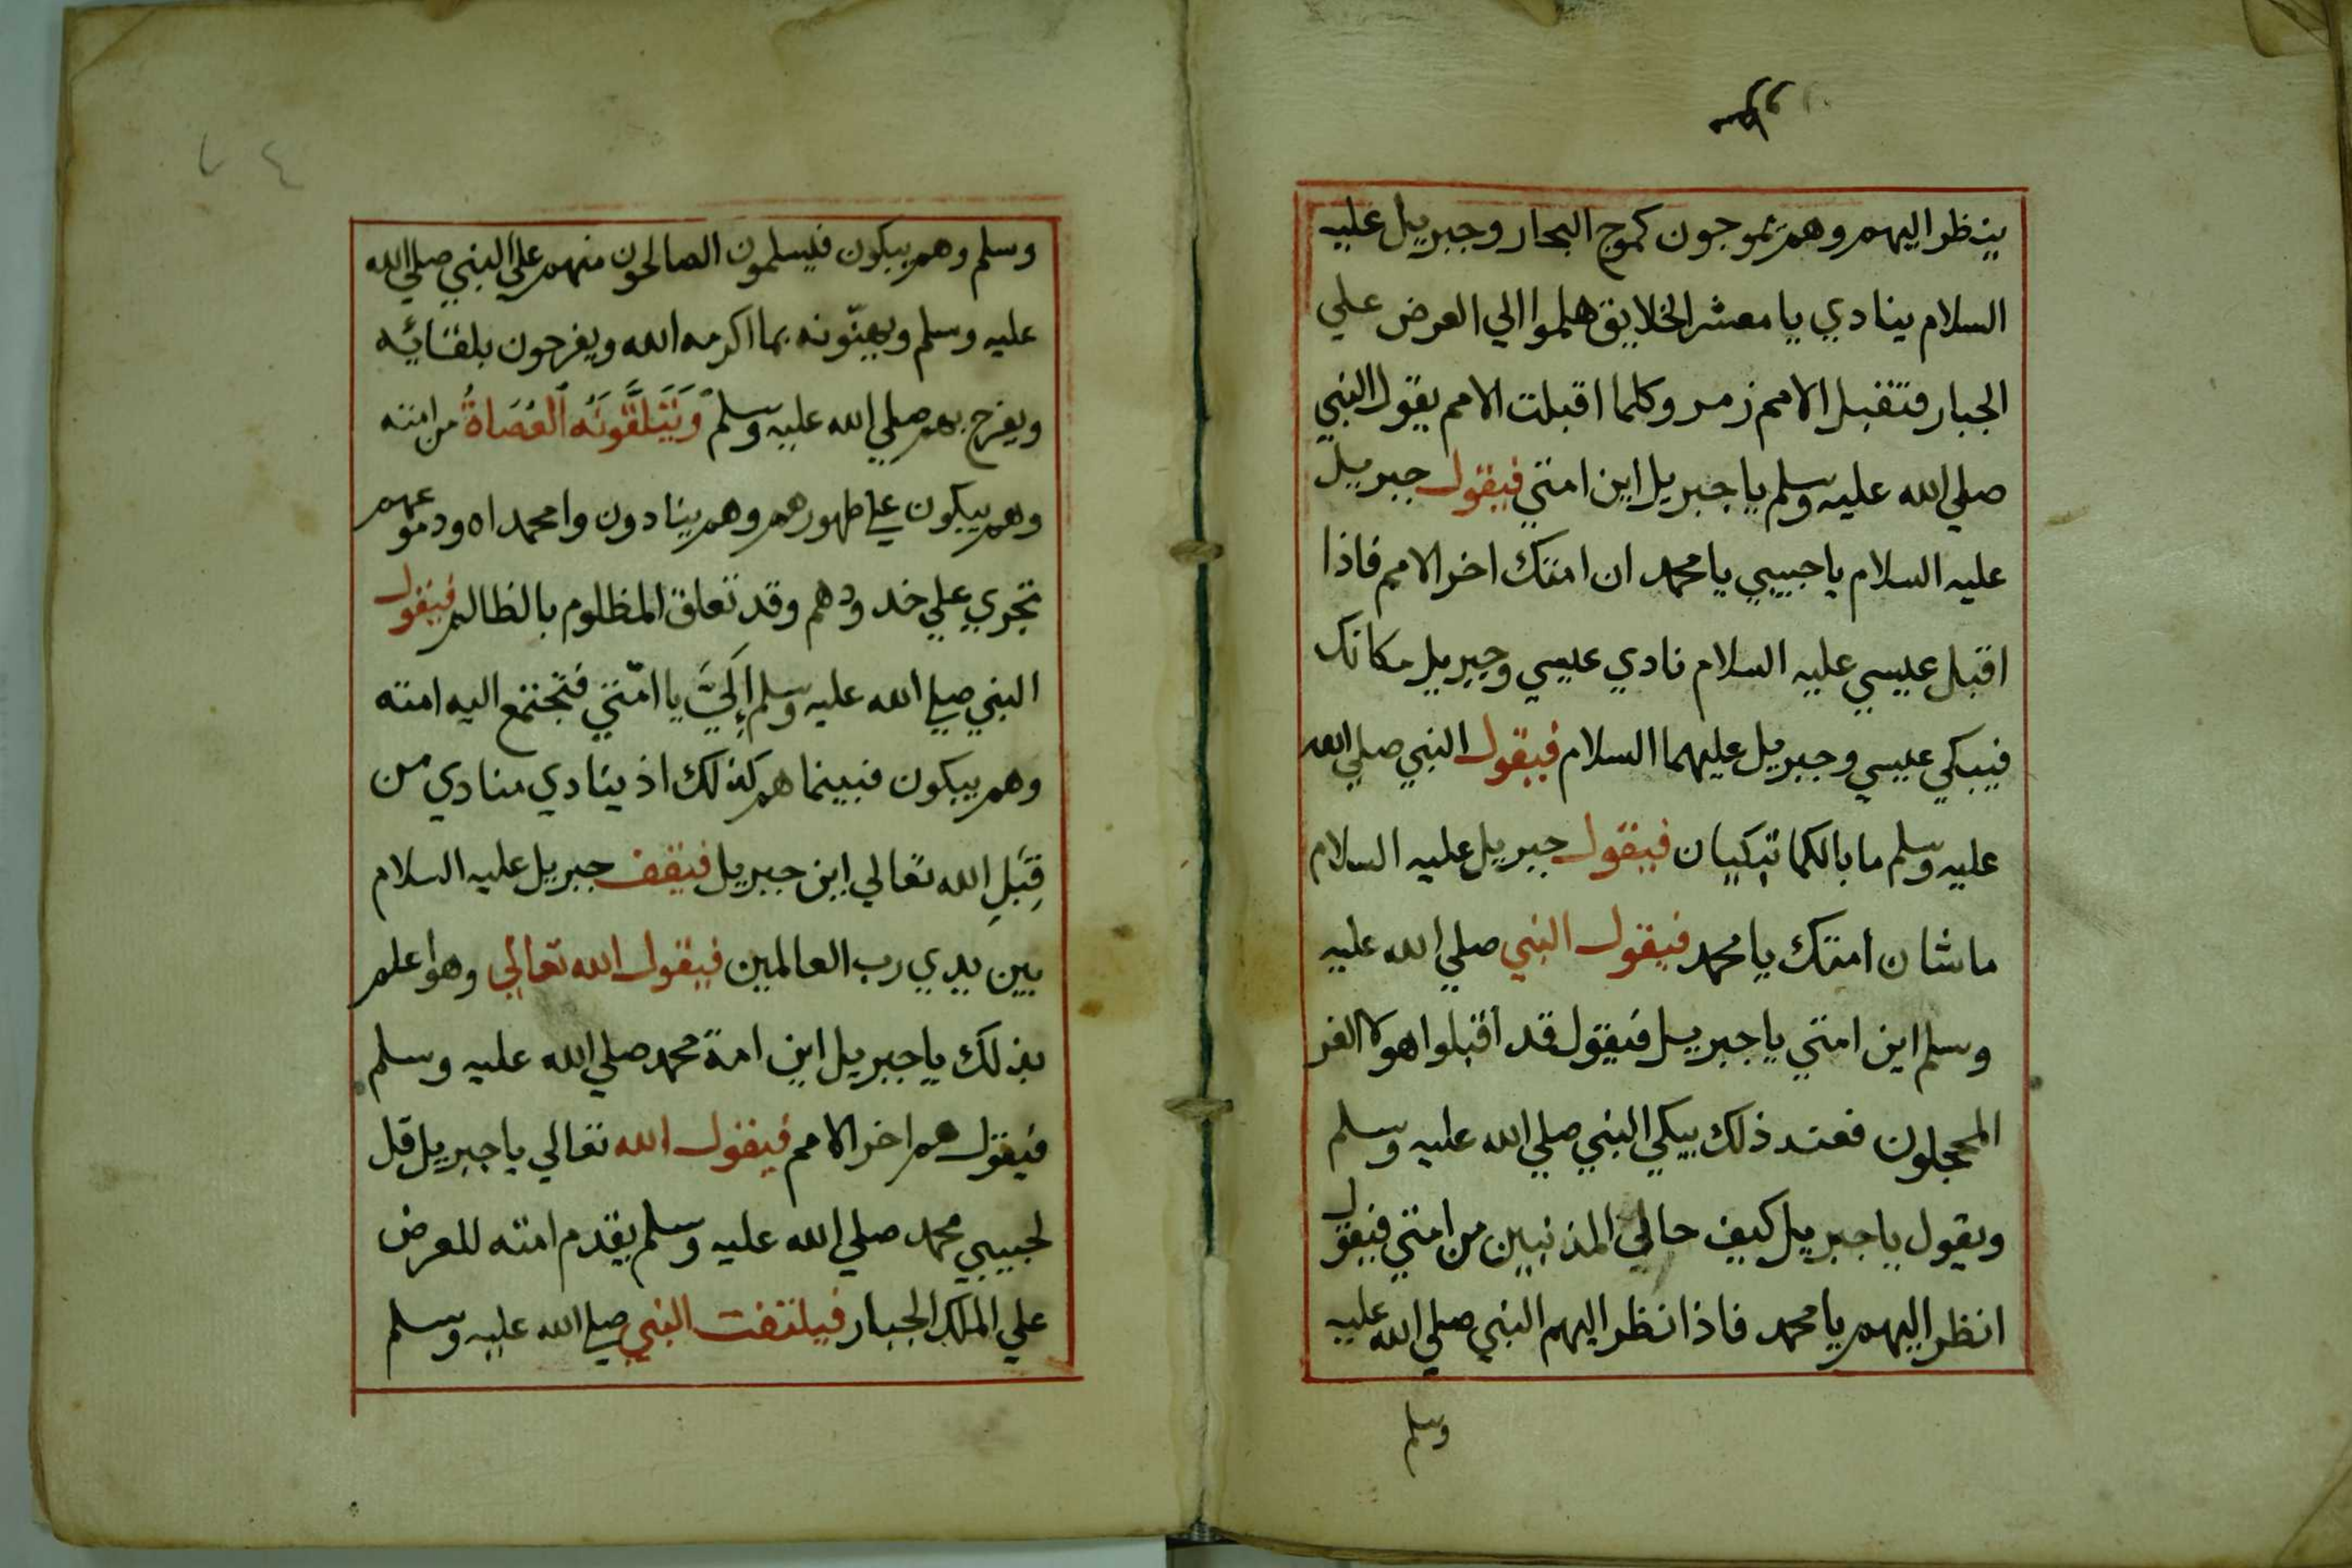 ينظر اليهم وهم يموجون كموج البحار وجبريل عليه
السلام ينادي يا معشر الخلايق هلموا الي العرض علي
الجبار فتقبل الامم زمر وكلما اقبلت الامم يقول النبي
صلي الله عليه وسلم يا جبريل اين امتي فيقول جبريل
عليه السلام يا حبيبي يا محمد ان امتك اخر الامم فاذا
اقبل عيسي عليه السلام نادي عيسي وجبريل مكانك
فيبكي عيسي وجبريل عليهما السلام فيقول النبي صلي الله
عليه وسلم ما بالكما تبكيان فيقول جبريل عليه السلام
ما شان أمتك يا محمد فيقول النبي صلي الله عليه
وسلم اين امتي يا جبريل فيقول قد اقبلوا هولا الغر
المحجلون فعند ذلك يبكي النبي صلي الله عليه وسلم
ويقول يا جبريل كيف حالي المذنبين من امتي فيقول
انظر اليهم يا محمد فاذا نظر اليهم النبي صلي الله عليه
وسلم
٧٤
وسلم وهم يبكون فيسلمون الصالحون منهم علي النبي صلي الله
عليه وسلم ويهنّونه بما اكرمه الله ويفرحون بلقائه
ويفرح بهم صلي الله عليه وسلم وَيَتَلَقَّوْنَهُ ٱلْعُصَاةُ من امته
وهم يبكون علي ظهورهم وهم ينادون وامحمداه ودموعهم
تجري علي خدودهم وقد تعلق المظلوم بالظالم فيقول
النبي صلي الله عليه وسلم إِلَيَّ يا امّتي فتجتمع اليه امته
وهم يبكون فبينما هم كذلك اذ ينادي منادي من
قِبَلِ الله تعالي اين جبريل فيقف جبريل عليه السلام
بين يدي رب العالمين فيقول الله تعالي وهو اعلم
بذلك يا جبريل اين امة محمد صلي الله عليه وسلم
فيقول هم اخر الامم فيقول الله تعالي يا جبريل قل
لحبيبي محمد صلي الله عليه وسلم يقدم امته للعرض
علي الملك الجبار فيلتفت النبي صلي الله عليه وسلم